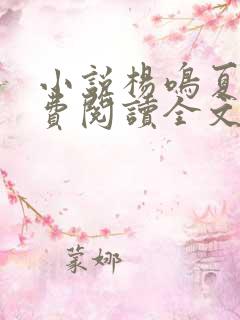 小說楊鳴夏
費閱讀全文
蒙娜